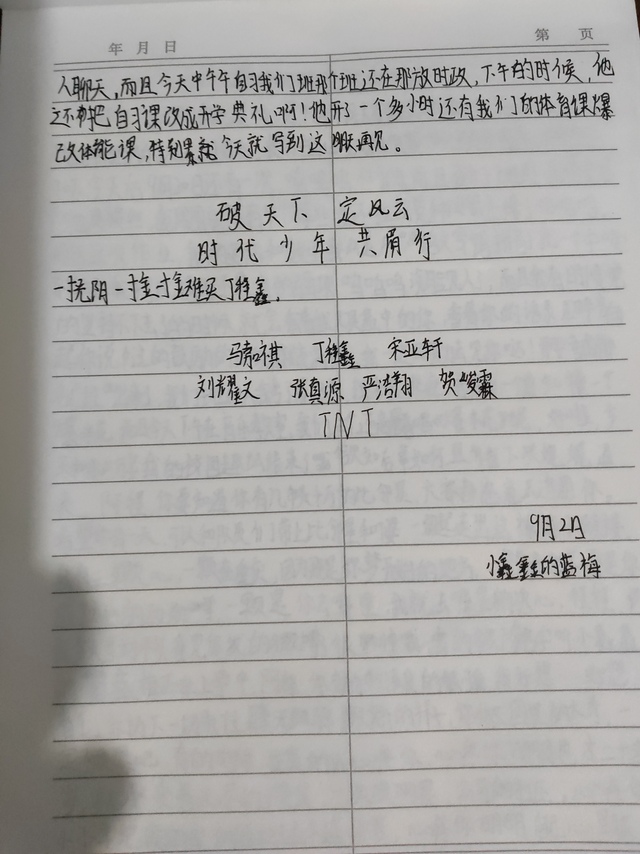 年 月 日
第 页
人聊天,而且今天中午午自习我们班那个班还在那放时政,下午的时候,他
还把自习课改成开学典礼啊!他开了一个多小时还有我们的体育课爆
改体能课,特别累就今天就写到这聊天再见。
破天下 定风云
时代少年 共肩行
一寸光阴一寸金寸金难买丁程鑫。
马嘉祺 丁程鑫 宋亚轩
刘耀文 张真源 严浩翔 贺峻霖
TNT
9月2日
小鑫鑫的蓝梅